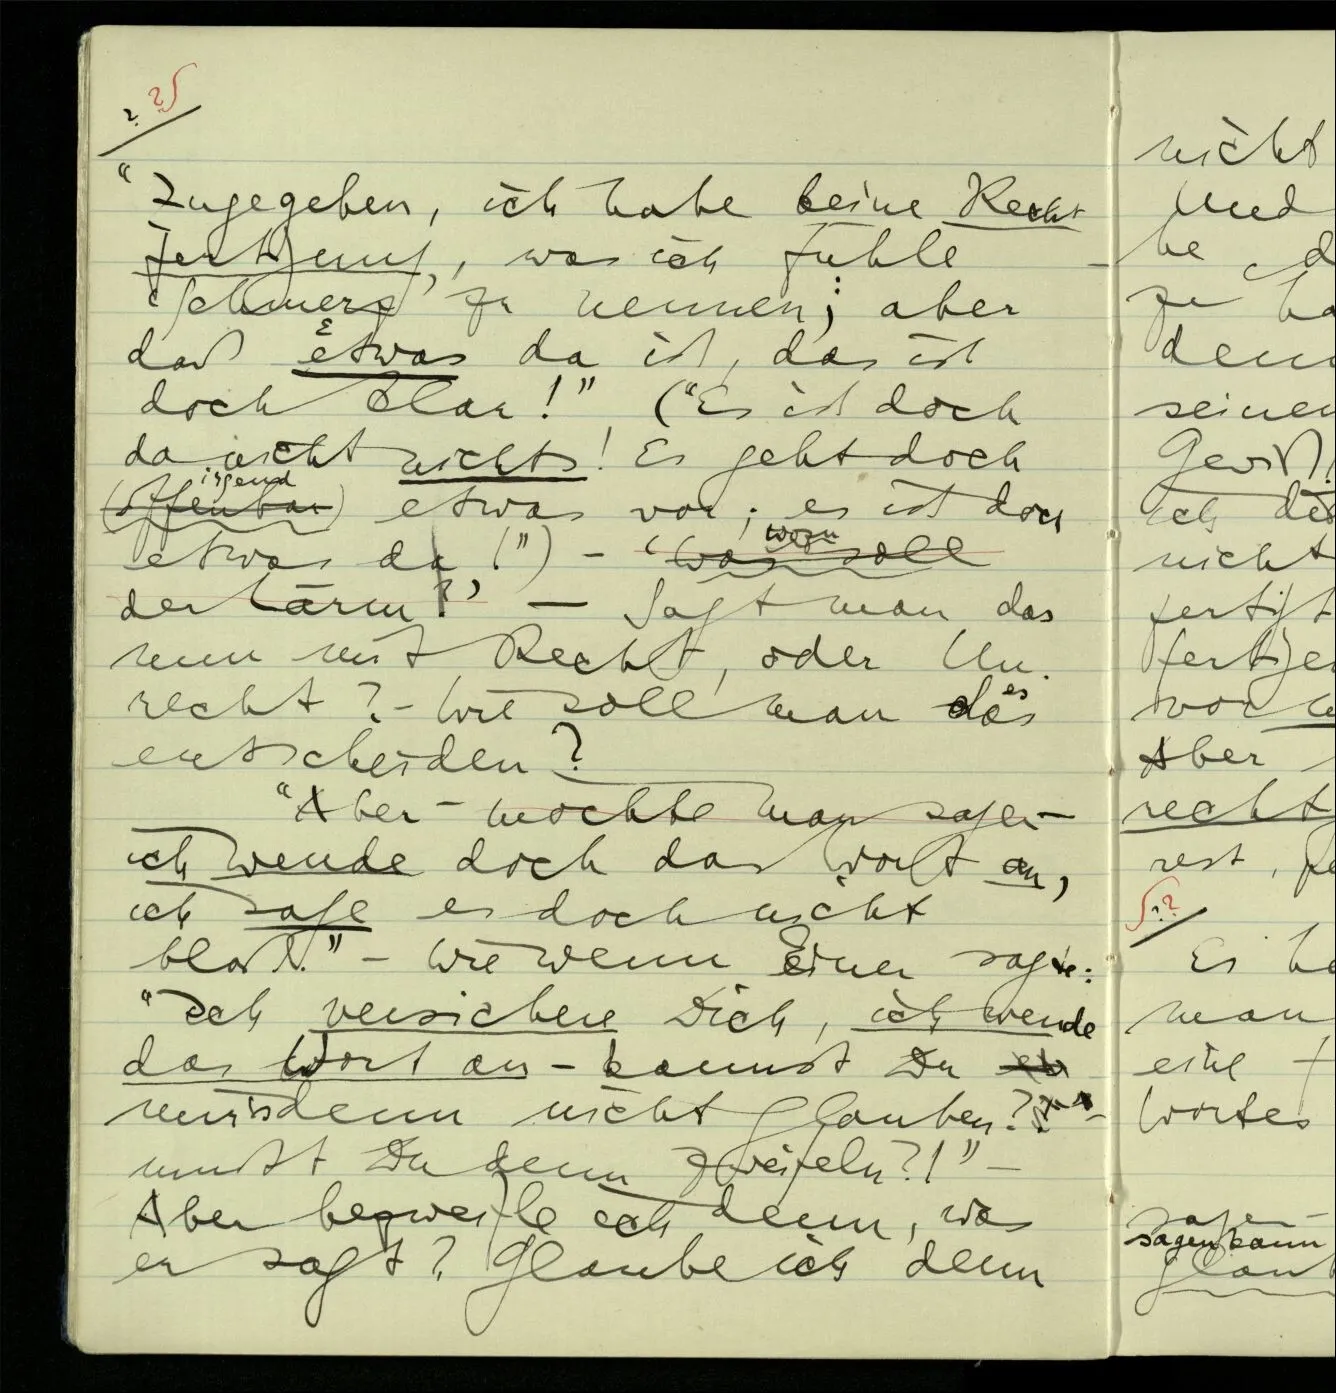 ? ?∫
"Zugegeben, ich habe keine Recht
fertigung, was ich fühle
'Schmerz' zu nennen; aber
daß Etwas da ist, das ist
doch klar!" ("Es ist doch
da nicht nichts! Es geht doch
irgend
(offenbar) etwas vor; es ist doch
etwas da!") – 'was soll
wozu
der Lärm?' – Sagt man das
nun mit Recht, oder Un-
recht? – Wie soll man das
es
entscheiden?
"Aber – möchte man sagen –
ich wende doch das Wort an,
ich sage es doch nicht
bloß." – Wie wenn Einer sagte:
"Ich versichere Dich, ich wende
das Wort an – kannst Du
mir's denn nicht glauben?? –
mußt Du denn zweifeln?!" –
Aber bezweifle ich denn, was
er sagt? Glaube ich denn
nicht
Und
be d
zu ha
dem
seinen
Gewiß!
ich
nicht
fertigt
fertigen
vor
Aber
recht
rest, fe
∫ ??
Es
man
eine
Wortes
sagen –
sagen kann
glaub